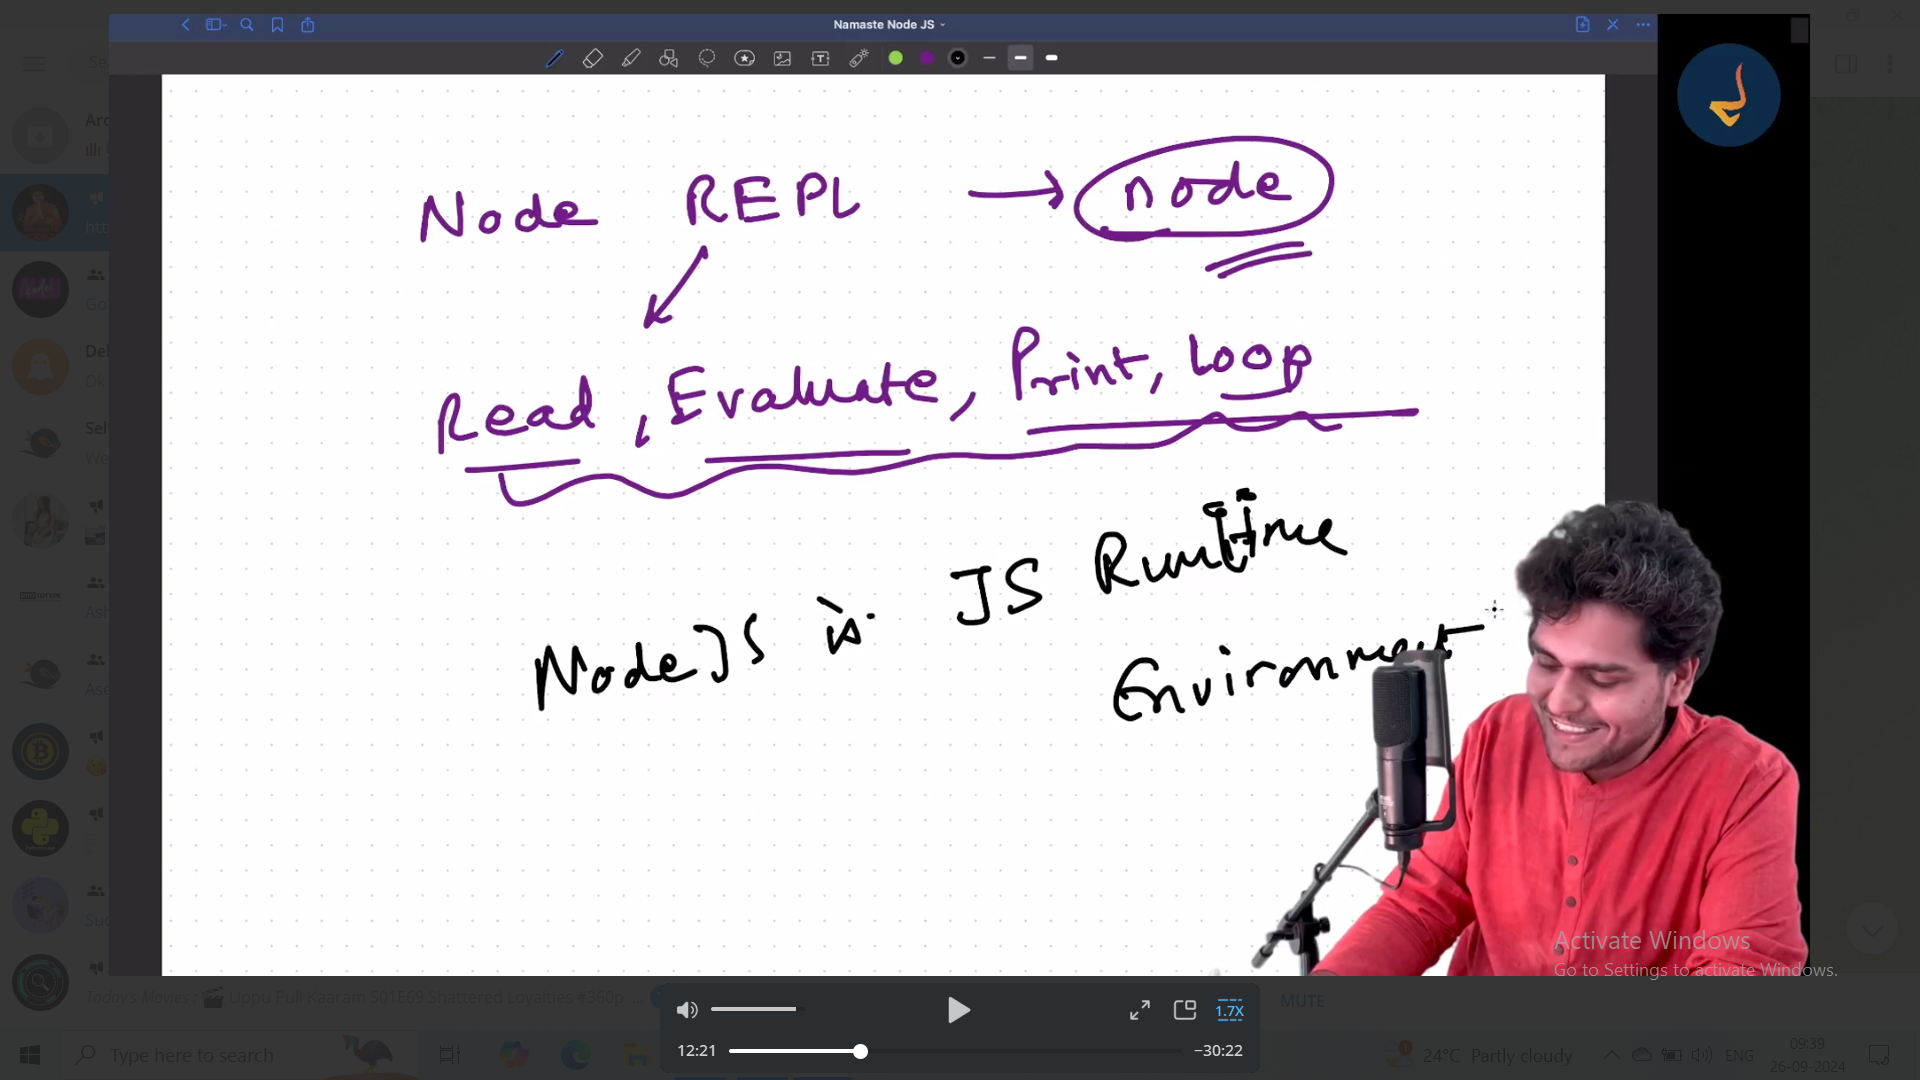 Namaste Node JS
Node REPL → node
Read, Evaluate, Print, Loop
NodeJS is JS Runtime
Environment
Activate Windows
Go to Settings to activate Windows.
Today's Movies : Uppu Puli Kaaram S01E69 Shattered Loyalties #360p ...
MUTE
1.7X
12:21
−30:22
Type here to search
1
24°C Partly cloudy
ENG
09:39
26-09-2024